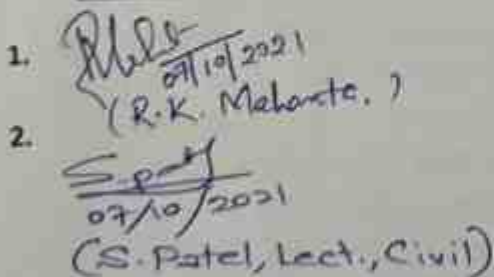 1.
07/10/2021
(R.K. Mahanta.)
2.
S.Patel
07/10/2021
(S. Patel, Lect., Civil)